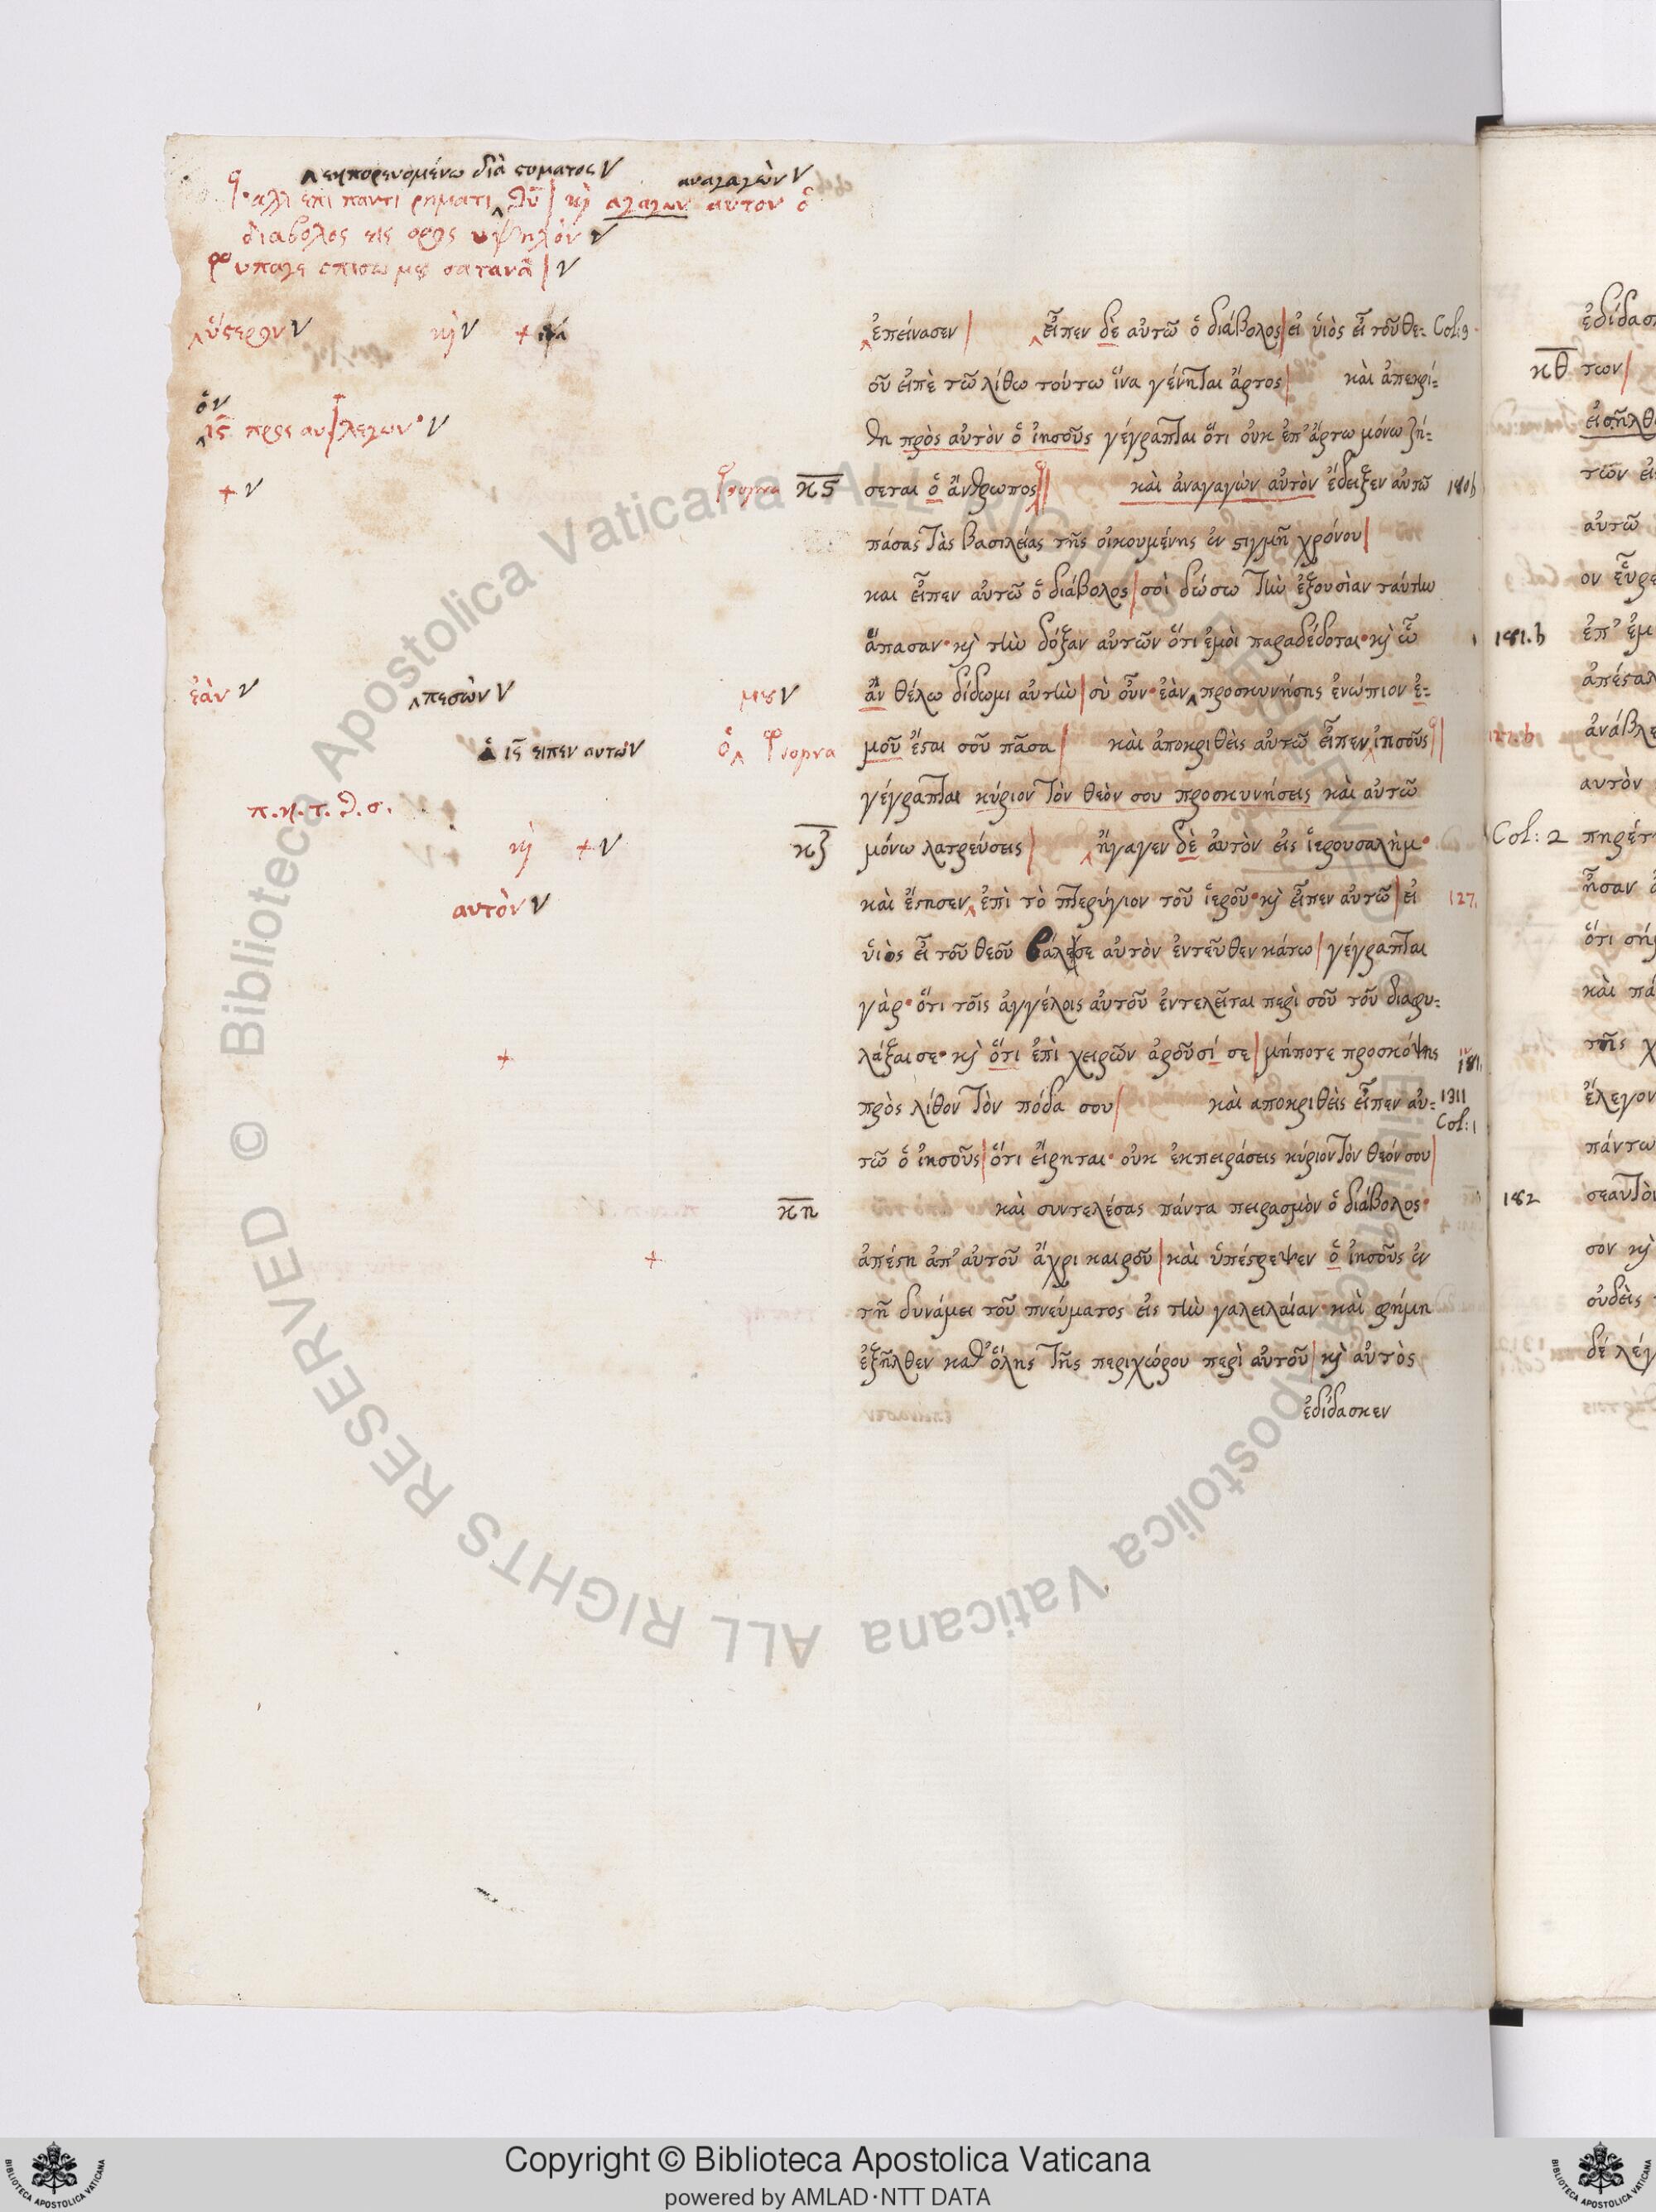 ⸤ἐκπορευομένω διὰ στόματος V ἀναγαγὼν V
αλλ επι παντι ρηματι ‸ θυ | κ̀ αγαγων αυτον ὁ
διαβολος εις ορος υψηλὸν V
υπαγε οπισω μου σατανᾶ | V
‸ὕστερον V κ̀ V +
‸ἐπείνασεν | ‸εἶπεν δὲ αὐτῶ ὁ διάβολος | εἰ ὑιὸς εἶ τοῦ θε- Col: 3
οῦ εἰπὲ τῶ λίθω τούτω ἵνα γένηται ἄρτος | καὶ ἀπεκρί-
ὁ V
‸ις προς αυτ λεγων· V
θη πρὸς αὐτὸν ὁ ἰησοῦς γέγραπται ὅτι οὐκ ἐπ' ἄρτω μόνω ζή-
+ V κϛ σεται ὁ ἄνθρωπος || καὶ ἀναγαγὼν αὐτὸν ἔδειξεν αὐτῶ 180 b
πάσας τὰς βασιλείας τῆς οἰκουμένης ἐν στιγμῆ χρόνου |
και εἶπεν αὐτῶ ὁ διάβολος | σοὶ δώσω τὴν ἐξουσίαν ταύτην
ἅπασαν· κ̀ τὴν δόξαν αὐτῶν ὅτι ἐμοὶ παραδέδοται· κ̀ ὧ
ἐὰν V ‸πεσὼν V μου V ἂν θέλω δίδωμι αὐτὴν | σὺ οὖν· ἐὰν ‸ προσκυνήσης ἐνώπιον ἐ-
ις ειπεν αυτω V ὁ‸ μοῦ ἔσται σοῦ πᾶσα | καὶ ἀποκριθεὶς αὐτῶ εἶπεν ‸ ἰησοῦς ||
γέγραπται κύριον τὸν θεόν σου προσκυνήσεις καὶ αὐτῶ
π. κ. τ. θ. σ.
κ̀ + V κζ μόνω λατρεύσεις | ‸ἤγαγεν δὲ αὐτὸν εἰς ἱερουσαλὴμ·
αυτὸν V καὶ ἔστησεν ‸ ἐπὶ τὸ πτερύγιον τοῦ ἱεροῦ· κ̀ εἶπεν αὐτῶ | εἰ 127.
ὑιὸς εἶ τοῦ θεοῦ βάλε σε αὐτὸν ἐντεῦθεν κάτω | γέγραπται
γὰρ· ὅτι τοῖς ἀγγέλοις αὐτοῦ ἐντελεῖται περὶ σοῦ τοῦ διαφυ-
+ λάξαι σε· κ̀ ὅτι ἐπὶ χειρῶν ἀροῦσί σε | μήποτε προσκόψης 181.
πρὸς λίθον τὸν πόδα σου | καὶ αποκριθεὶς εἶπεν αὐ- 1311
Col: 1
τῶ ὁ ἰησοῦς | ὅτι εἴρηται· οὐκ ἐκπειράσεις κύριον τὸν θεόν σου |
κη καὶ συντελέσας πάντα πειρασμὸν ὁ διάβολος·
+ ἀπέστη ἀπ' αὐτοῦ ἄχρι καιροῦ | καὶ ὑπέστρεψεν ὁ ἰησοῦς ἐν
τῆ δυνάμει τοῦ πνεύματος εἰς τὴν γαλειλαίαν· καὶ φήμη
ἐξῆλθεν καθ' ὅλης τῆς περιχώρου περὶ αὐτοῦ | κ̀ αὐτὸς
ἐδίδασκεν
κθ των |
181. b ἐπ' ἐμ
ἀπέσταλ
ἀνάβλε
αυτὸν
Col: 2 πηρέτ
ἦσαν
ὅτι σή
καὶ πά
τῆς χ
ἔλεγον
πάντω
182 σεαυτὸν
σον κ̀
οὐδεὶς
δέ λέγ
© Biblioteca Apostolica Vaticana ALL RIGHTS RESERVED
Copyright © Biblioteca Apostolica Vaticana
powered by AMLAD・NTT DATA
BIBLIOTECA APOSTOLICA VATICANA
BIBLIOTECA APOSTOLICA VATICANA